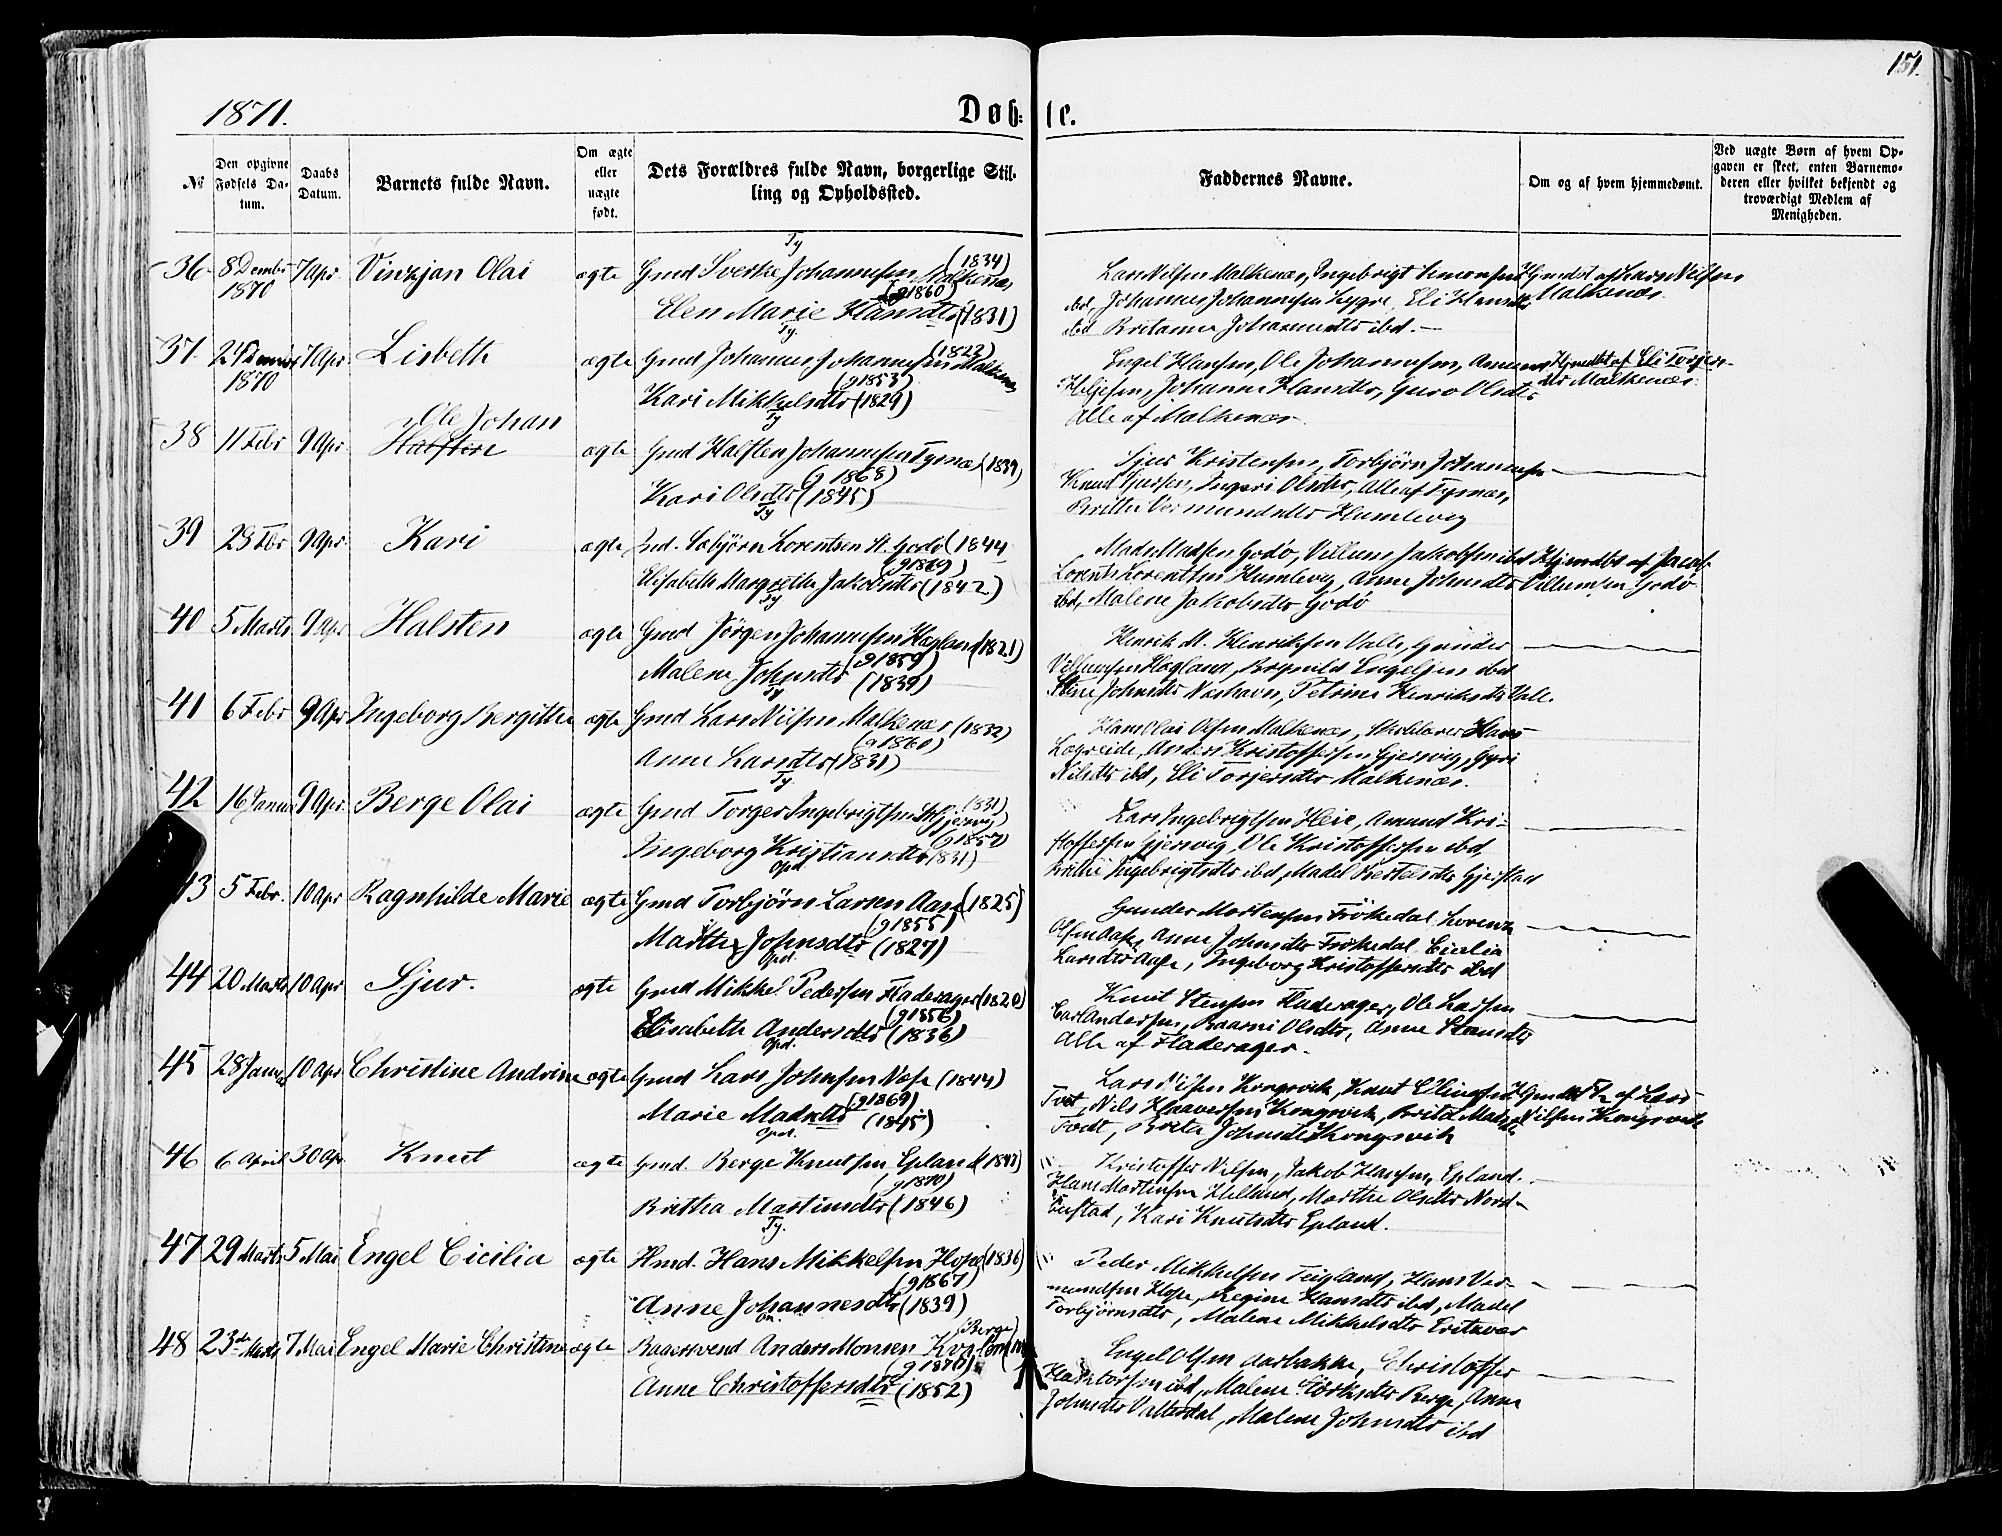 151.
1871.
Døb- te.
№
Den opgivne Fødsels Datum.
Daabs Datum.
Barnets fulde Navn.
Om ægte eller uægte født.
Dets Forældres fulde Navn, borgerlige Stilling og Opholdssted.
Faddernes Navne.
Om og af hvem hjemmedøbt.
Ved uægte Børn af hvem Opgaven er skeet, enten Barnemoderen eller hvilket bekjendt og troværdigt Medlem af Menigheden.
Ty
36 8 Dembr 1870 7 Apr. Vinzjan Olai ægte Gmd Sverke Johannesen Malkenæs (1834)
(g1860)
Elen Marie Hansdtr (1831)
Lars Nilsen Malkenæs, Ingebrigt Simonsen
ibd, Johannes Johannesen Lygre, Eli Hansdtr
ibd Britanna Johannesdtr ibd. —
Hjmdbt af Lars Nilsen
Malkenæs.
Ty.
37. 1870 7 Apr Lisbeth ægte Gmd Johannes Johannesen Malkenæs (1823)
(g1853)
Kari Mikkelsdtr (1829)
Engel Hansen, Ole Johannesen,
Helgesen, Johanne Hansdtr, Guro Olsdtr
Alle af Malkenæs.
Hjmdbt af Eli Torjersdtr Malkenæs.
Ty
38 11 Febr 9 Apr Ole Johan Halsten ægte Gmd Halsten Johannesen Tysnæs (1839)
(g 1868)
Kari Olsdtr (1845)
Sjur Kristensen, Torbjørn Johannesen
Knud Sjursen, Ingeri Olsdtr, Alle af Tysnæs,
Britha Vermundsdtr Humlevig
Ty
39 28 Fbr 9 Apr. Kari ægte Ind. Sæbjørn Lorentsen St. Godø (1844
(g1869)
Elisabeth Margrethe Jakobsdtr (1842)
Mads Madsen Godø, Villum Jakobsen ibd
Lorents Lorentsen Humlevig, Anna Johnsdtr
ibd, Malene Jakobsdtr Godø
Hjemdbt af Jacob
Villumsen Godø
Ty
40 5 Marts 9 Apr Halsten ægte Gmd Jørgen Johannesen Hagland (1821)
(g1859)
Malene Johnsdtr (1839)
Henrik M. Henriksen Valle, Gunder
Villumsen Hagland, Engeljen ibd
Stine Johnsdtr Neshavn, Petrine Henriksdtr Valle.
Ty
41 6 Febr 9 Apr Ingeborg Bergitta ægte Gmd Lars Nilsen Malkenæs (1832)
(g1860)
Anne Larsdtr (1831)
Hans Olai Olsen Malkenæs, Skolelærer Hans
Legreide, Anders Kristoffersen Gjersvig, Guri
Nilsdtr ibd, Eli Torjersdtr Malkenæs.
Ty
42 16 Januar 9 Apr. Berge Olai ægte Gmd Torger Ingebrigtsen Gjersvig (1831)
(g1857)
Ingeborg Kristiansdtr (1831)
Lars Ingebrigtsen Heie, Amund Kristoffersen Gjersvig, Ole Kristoffersen ibd,
Brithe Ingebrigtsdtr ibd, Madel Gjerstad
Opd.
43 5 Febr. 10 Apr Ragnhilde Marie ægte Gmd Torbjørn Larsen Aase (1825)
(g1855)
Marthe Johnsdtr (1827)
Gunder Mortensen Frökedal, Lorentz
Olsen Aase, Anne Johnsdtr Frökedal, Cicilia
Larsdtr Aase, Ingeborg Kristoffersdtr ibd
Opd.
44 20 Marts 10 Apr Sjur. ægte Gmd Mikkel Pedersen Fladerager (1820)
(g1856)
Elisabeth Andersdtr (1836)
Knut Stensen Fladerager, Ole Larsen
Carl Andersen, Olsdtr, Anne Stensdtr
Alle af Fladerager.
Opd.
45 28 Januar 10 Apr Christine Andrine ægte Gmd Lars Johnsen Nese (1844)
(g1869)
Marie Madsdtr (1845)
Lars Nilsen Kongsvik, Knut Ellingsen
Tvet, Nils Haaversen Kongsvik, Brita Madsdtr
Tvedt, Brita Johnsdtr Kongsvik
af Lars
Nilsen Kongsvik
Opd.
46 6 April 30 Apr Knut ægte Gmd. Berge Knutsen Epland (1847)
(g1870)
Britha Martinsdtr (1846)
Kristoffer Nilsen, Jakob Hansen, Epland.
Hans Mortensen Helland, Marthe Olsdtr Nordfustad, Kari Knutsdtr Epland.
Ty.
47 29 Marts 5 Mai Engel Cicilia ægte Hmd. Hans Mikkelsen Hope (1836)
(g1867)
Anne Johannesdtr (1839)
Peder Mikkelsen Teigland, Hans Vermundsen Hope, Regine Hansdtr ibd, Madel
Torbjørnsdtr, Malene Mikkelsdtr Eritzvær
48 23de Marts 7 Mai Engel Marie Christine ægte Bagersvend Anders Monsen Kva
(g1870)
Anne Christoffersdtr (1852)
Engel Olsen Aarbakke, Christoffer
ibd, Malene Berge, Anna
Johnsdtr Vallesdal, Malene Johnsdtr ibd